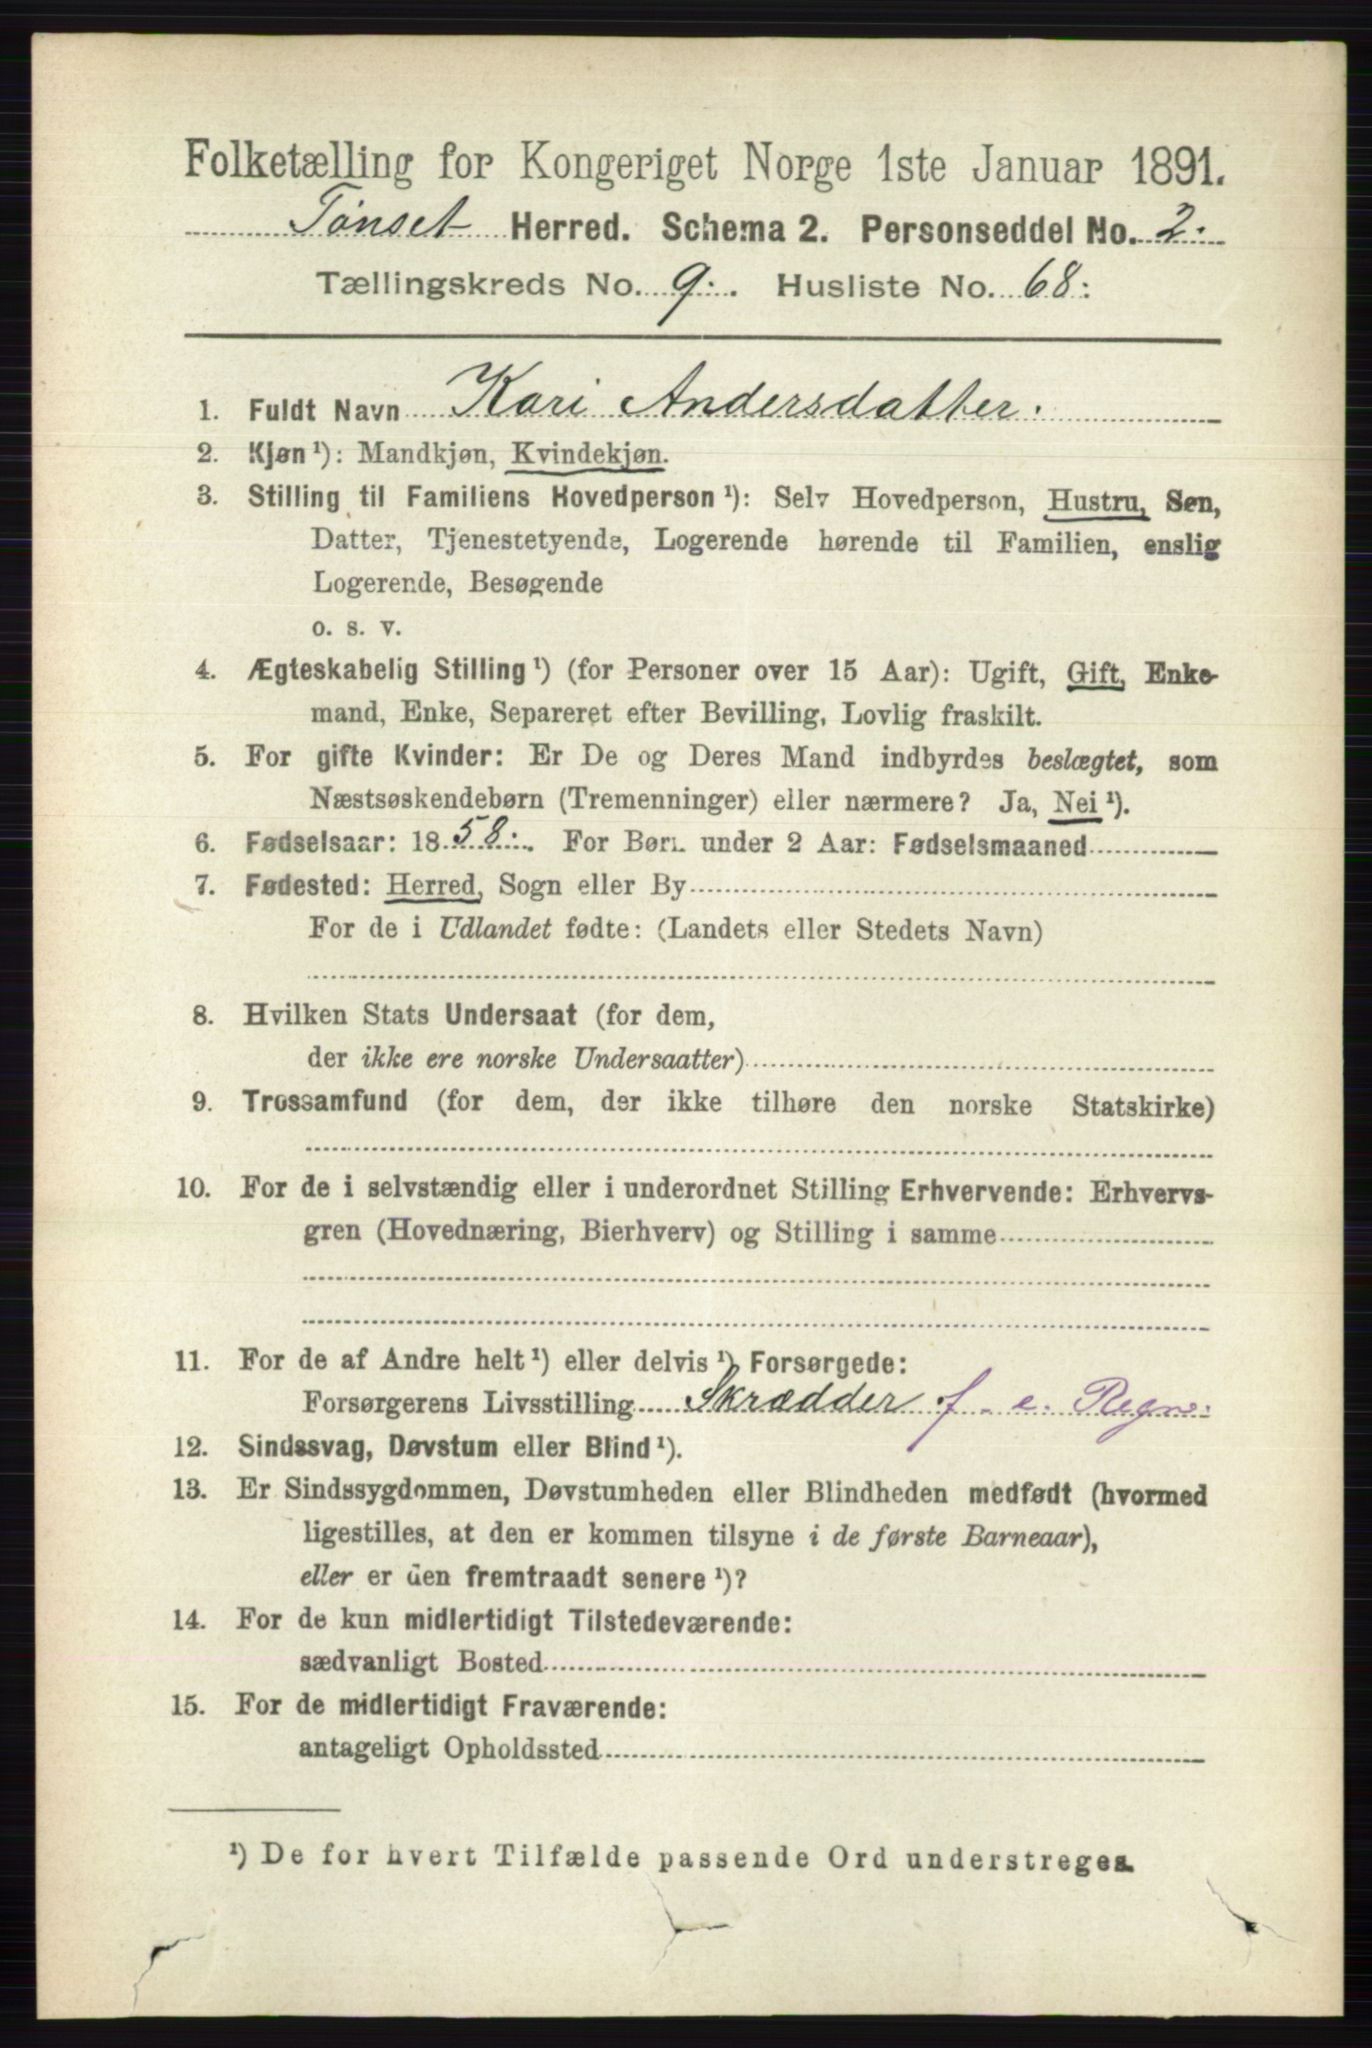 Folketælling for Kongeriget Norge 1ste Januar 1891.
Tønset Herred. Schema 2. Personseddel No. 2.
Tællingskreds No. 9. Husliste No. 68:
1. Fuldt Navn Kari Andersdatter.
2. Kjøn¹): Mandkjøn, Kvindekjøn.
3. Stilling til Familiens Hovedperson¹): Selv Hovedperson, Hustru, Søn,
Datter, Tjenestetyende, Logerende hørende til Familien, enslig
Logerende, Besøgende
o. s. v.
4. Ægteskabelig Stilling¹) (for Personer over 15 Aar): Ugift, Gift, Enke-
mand, Enke, Separeret efter Bevilling, Lovlig fraskilt.
5. For gifte Kvinder: Er De og Deres Mand indbyrdes beslægtet, som
Næstsøskendebørn (Tremenninger) eller nærmere? Ja, Nei¹).
6. Fødselsaar: 1858. For Børn under 2 Aar: Fødselsmaaned
7. Fødested: Herred, Sogn eller By
For de i Udlandet fødte: (Landets eller Stedets Navn)
8. Hvilken Stats Undersaat (for dem,
der ikke ere norske Undersaatter)
9. Trossamfund (for dem, der ikke tilhøre den norske Statskirke)
10. For de i selvstændig eller i underordnet Stilling Erhvervende: Erhvervs-
gren (Hovednæring, Bierhverv) og Stilling i samme
11. For de af Andre helt¹) eller delvis¹) Forsørgede:
Forsørgerens Livsstilling Skrædder f. e. Regn.
12. Sindssvag, Døvstum eller Blind¹).
13. Er Sindssygdommen, Døvstumheden eller Blindheden medfødt (hvormed
ligestilles, at den er kommen tilsyne i de første Barneaar),
eller er den fremtraadt senere¹)?
14. For de kun midlertidigt Tilstedeværende:
sædvanligt Bosted
15. For de midlertidigt Fraværende:
antageligt Opholdssted
¹) De for hvert Tilfælde passende Ord understreges.